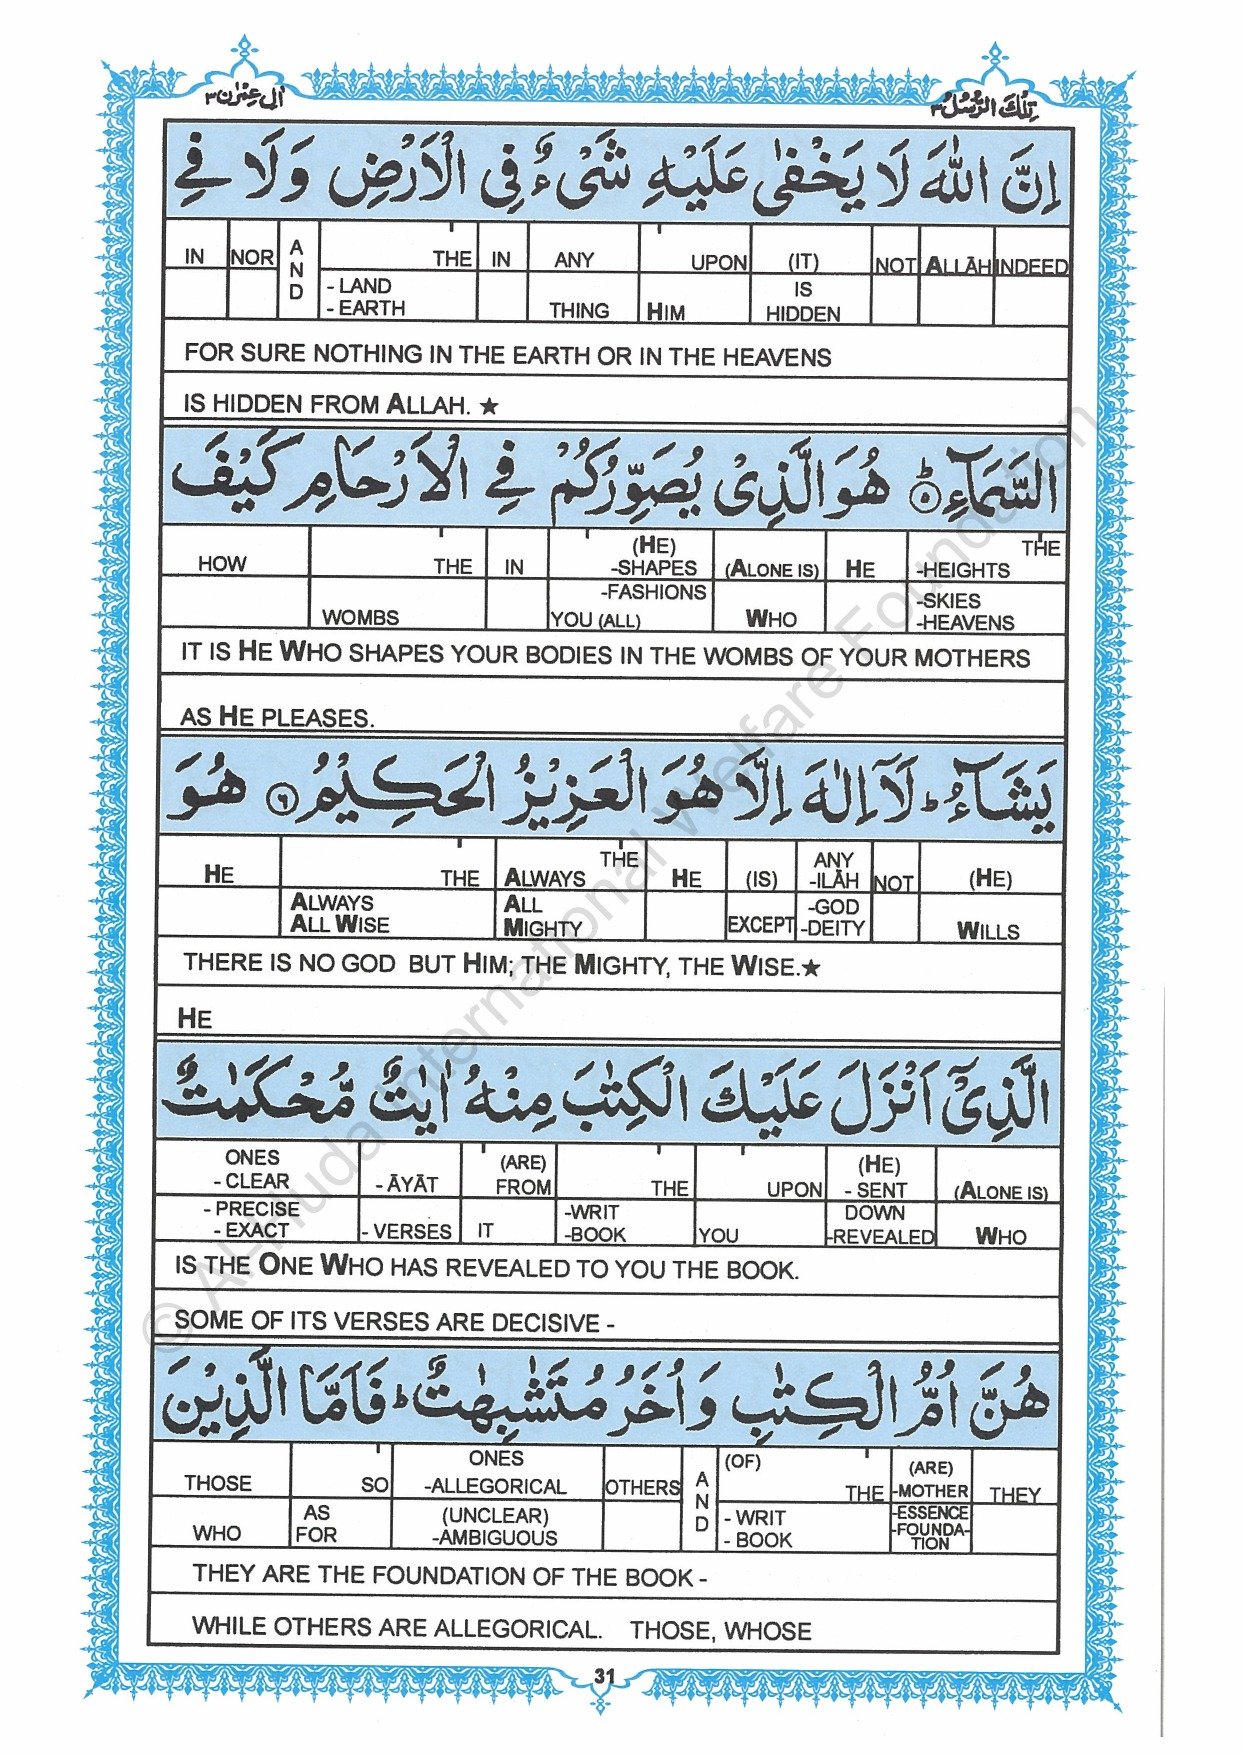 اٰلِ عِمْرٰن ٣ تِلْكَ الرُّسُلُ ٣
اِنَّ اللّٰهَ لَا يَخْفٰى عَلَيْهِ شَىْءٌ فِى الْاَرْضِ وَلَا فِى
IN NOR AND THE IN ANY UPON (IT) NOT ALLĀH INDEED
- LAND
- EARTH THING HIM IS HIDDEN
FOR SURE NOTHING IN THE EARTH OR IN THE HEAVENS
IS HIDDEN FROM ALLAH. ★
السَّمَآءِ ؕ ۵ هُوَ الَّذِىْ يُصَوِّرُكُمْ فِى الْاَرْحَامِ كَيْفَ
HOW THE IN (HE) -SHAPES (ALONE IS) HE THE -HEIGHTS
WOMBS -FASHIONS YOU (ALL) WHO -SKIES -HEAVENS
IT IS HE WHO SHAPES YOUR BODIES IN THE WOMBS OF YOUR MOTHERS
AS HE PLEASES.
يَشَآءُ ؕ لَاۤ اِلٰهَ اِلَّا هُوَ الْعَزِيْزُ الْحَكِيْمُ ۶ هُوَ
HE THE ALWAYS THE HE (IS) ANY -ILĀH NOT (HE)
ALWAYS ALL WISE ALL MIGHTY EXCEPT -GOD -DEITY WILLS
THERE IS NO GOD BUT HIM; THE MIGHTY, THE WISE.★
HE
الَّذِىْۤ اَنْزَلَ عَلَيْكَ الْكِتٰبَ مِنْهُ اٰيٰتٌ مُّحْكَمٰتٌ
ONES - CLEAR - ĀYĀT (ARE) FROM THE UPON (HE) - SENT (ALONE IS)
- PRECISE - EXACT - VERSES IT -WRIT -BOOK YOU DOWN -REVEALED WHO
IS THE ONE WHO HAS REVEALED TO YOU THE BOOK.
SOME OF ITS VERSES ARE DECISIVE -
هُنَّ اُمُّ الْكِتٰبِ وَاُخَرُ مُتَشٰبِهٰتٌ ؕ فَاَمَّا الَّذِيْنَ
THOSE SO ONES -ALLEGORICAL OTHERS AND (OF) THE (ARE) -MOTHER THEY
WHO AS FOR (UNCLEAR) -AMBIGUOUS - WRIT - BOOK -ESSENCE -FOUNDA-TION
THEY ARE THE FOUNDATION OF THE BOOK -
WHILE OTHERS ARE ALLEGORICAL. THOSE, WHOSE
31
© Al-Huda International Welfare Foundation